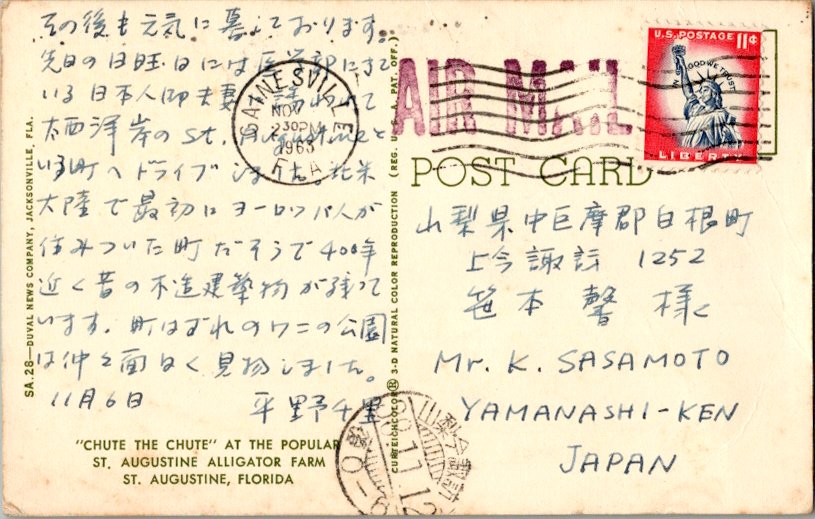 その後も元気に暮しております。
先日の日曜日には医学部にきて
いる日本人御夫妻
大西洋岸のSt. Augustineと
いう町へドライブしました。北米
大陸で最初にヨーロッパ人が
住みついた町だそうで400年
近く昔の木造建築物が残って
います。町はずれのワニの公園
は仲々面白く見物しました。
11月6日 平野千里
"CHUTE THE CHUTE" AT THE POPULAR
ST. AUGUSTINE ALLIGATOR FARM
ST. AUGUSTINE, FLORIDA
SA.28—DUVAL NEWS COMPANY, JACKSONVILLE, FLA.
CURTEICHCOLOR® 3-D NATURAL COLOR REPRODUCTION (REG. U. S. A. PAT. OFF.)
GAINESVILLE
NOV
230PM
1963
FLA
AIR MAIL
U.S. POSTAGE 11¢
IN GOD WE TRUST
LIBERTY
POST CARD
山梨県中巨摩郡白根町
上今諏訪 1252
笹本 馨 様
Mr. K. SASAMOTO
YAMANASHI-KEN
JAPAN